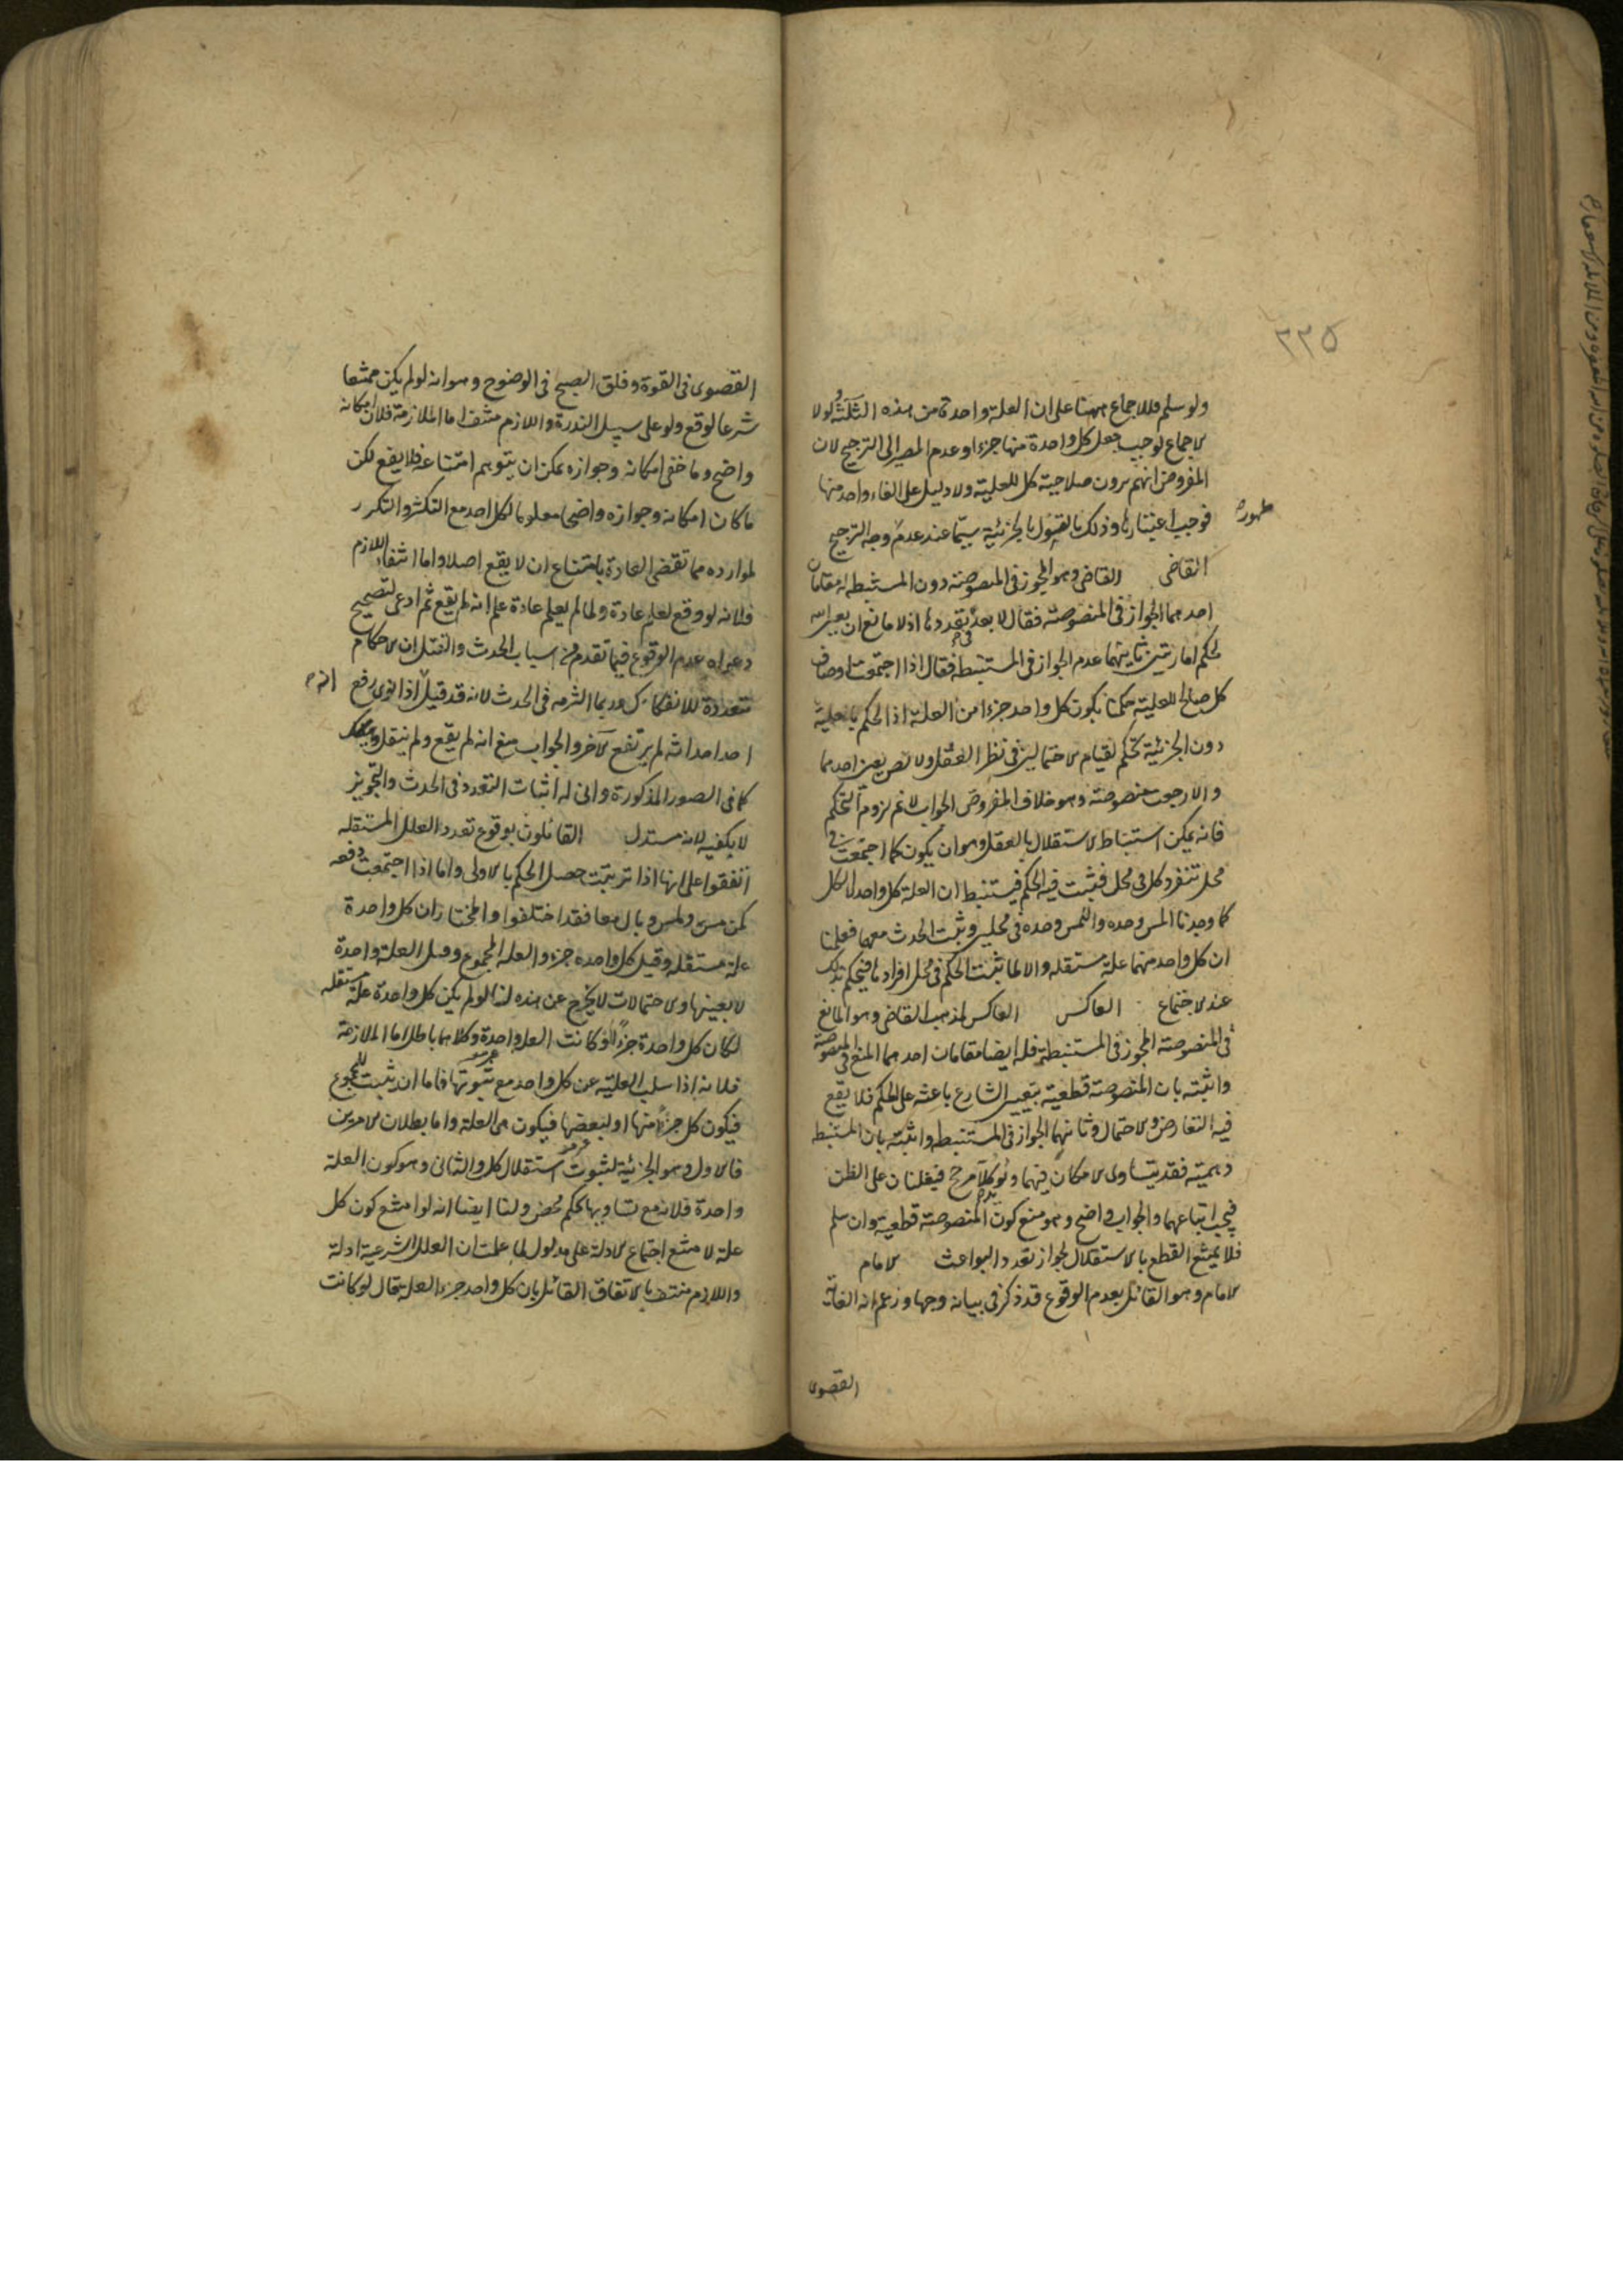 ٢٢٥
ولو سلم فللاجماع ههنا على ان العلة واحدة من هذه الثلثة ولولا
الاجماع لوجب جعل كل واحدة منها جزءا وعدم المصير الى الترجيح لان
المفروض انهم يرون صلاحية كل للعلية ولا دليل على الغاء واحد منها
فوجب اعتبارها وذلك بالقول بالجزئية سيما عند عدم وجه الترجيح
ظهور
القاضى القاضى وهو المجوز فى المنصوصة دون المستنبطة له مقامان
احدهما الجواز فى المنصوصة فقال لا بعد فى تعددها اذ لا مانع ان يعين الله
لحكم امارتين ثانيهما عدم الجواز فى المستنبطة فقال اذا اجتمعت اوصاف
كل صالح للعلية حكمنا بكون كل واحد جزءا من العلة اذ الحكم بالعلية
دون الجزئية تحكم لقيام الاحتمالين فى نظر العقل ولا نص يعين احدهما
والا رجعت منصوصة وهو خلاف المفروض الجواب لا نم لزوم التحكم
فانه يمكن استنباط الاستقلال بالعقل وهو ان يكون كما اجتمعت فى
محل تنفرد كل فى محل فثبت فيه الحكم فيستنبط ان العلة كل واحد لا الكل
كما وجدنا المس وحده واللمس وحده فى محلين وثبت الحدث معهما فعلمنا
ان كل واحد منهما علة مستقلة والا لما ثبت الحكم فى محل افرادها فيحكم بذلك
عند الاجتماع العاكس العاكس لمذهب القاضى وهو المانع
فى المنصوصة المجوز فى المستنبطة فله ايضا مقامان احدهما المنع فى المنصوصة
واثبته بان المنصوصة قطعية بتعيين الشارع باعثه على الحكم فلا يقع
فيه التعارض والاحتمال وثانيهما الجواز فى المستنبطة واثبته بان المستنبطة
وهمية فقد يتساوى الامكان فيهما ويؤيد كلا مرجح فيغلبان على الظن
فيجب اتباعهما والجواب واضح وهو منع كون المنصوصة قطعية وان سلم
فلا يمتنع القطع بالاستقلال لجواز تعدد البواعث الامام
الامام وهو القائل بعدم الوقوع قد ذكر فى بيانه وجها وزعم انه الغاية
القصوى
القصوى فى القوة وفلق الصبح فى الوضوح وهو انه لو لم يكن ممتنعا
شرعا لوقع ولو على سبيل الندرة واللازم منتف اما الملازمة فلان امكانه
واضح وما خفى امكانه وجوازه يمكن ان يتوهم امتناعه فلا يقع لكن
ما كان امكانه وجوازه واضحا معلوما لكل احد مع التكثر والتكرر
لموارده مما تقضى العادة بامتناع ان لا يقع اصلا واما انتفاء اللازم
فلانه لو وقع لعلم عادة ولما لم يعلم عادة علم انه لم يقع ثم ادعى لتصحيح
دعواه عدم الوقوع فيما تقدم من اسباب الحدث والقتل ان الاحكام
متعددة للانفكاك وربما التزمه فى الحدث لانه قد قيل اذا نوى رفع
احد احداثه لم يرتفع الآخر والجواب منع انه لم يقع ولم ينقل
كما فى الصور المذكورة وانى له اثبات التعدد فى الحدث والتجويز
لا يكفيه لانه مستدل القائلون بوقوع تعدد العلل المستقلة
اتفقوا على انها اذا ترتبت حصل الحكم بالاولى واما اذا اجتمعت دفعة
كمن مس ولمس وبال معا فقد اختلفوا والمختار ان كل واحدة
علة مستقلة وقيل كل واحدة جزء والعلة المجموع وقيل العلة واحدة
لا بعينها والاحتمالات لا يخرج عن هذه لنا لو لم يكن كل واحدة علة مستقلة
لكان كل واحدة جزءا او كانت العلة واحدة وكلاهما باطل اما الملازمة
فلانه اذا سلب العلية عن كل واحد مع ثبوتها فاما ان يثبت للمجموع
فيكون كل جزءا منها او لبعضها فيكون هى العلة واما بطلان الامرين
فالاول وهو الجزئية لثبوت استقلال كل والثانى وهو كون العلة
واحدة فلانه مع تساويها تحكم محض ولنا ايضا انه لو امتنع كون كل
علة لامتنع اجتماع الادلة على مدلول لما علمت ان العلل الشرعية ادلة
واللازم منتف بالاتفاق القائل بان كل واحد جزء العلة قال لو كانت